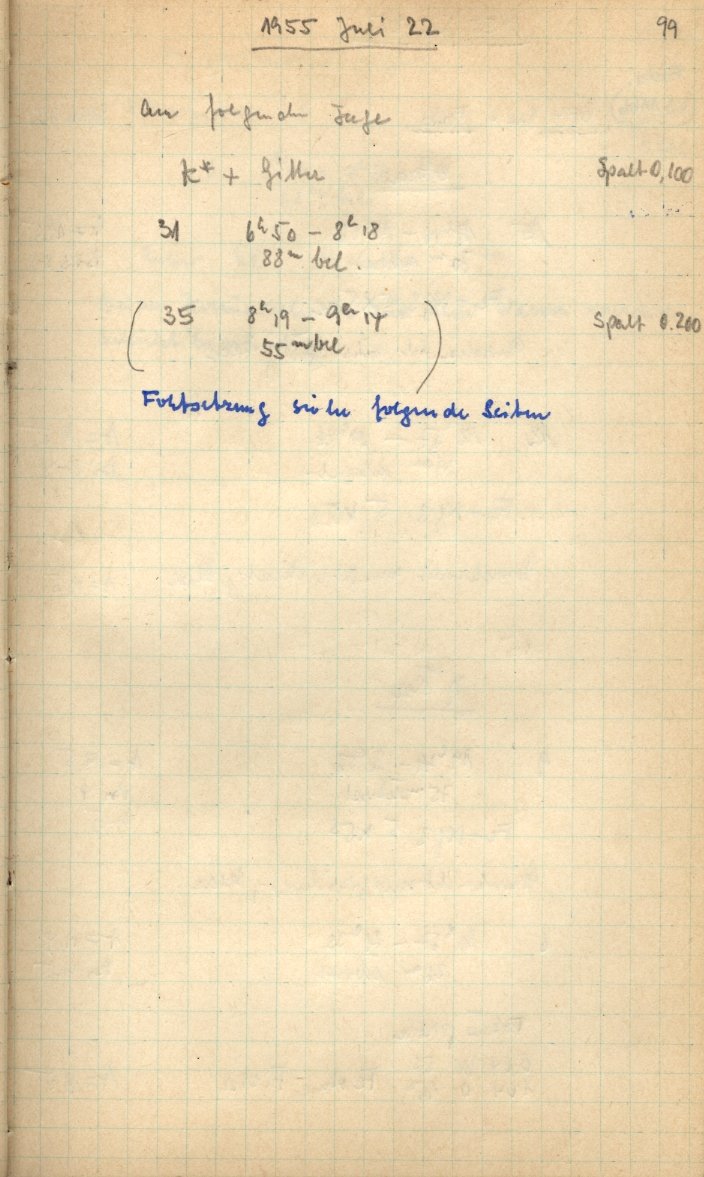 1955 Juli 22 99
Am folgenden Tage
k* + Gitter Spalt 0,100
31 6h50 – 8h18
88m bel.
(35 8h19 – 9h14) Spalt 0.200
55m bel
Fortsetzung siehe folgende Seiten